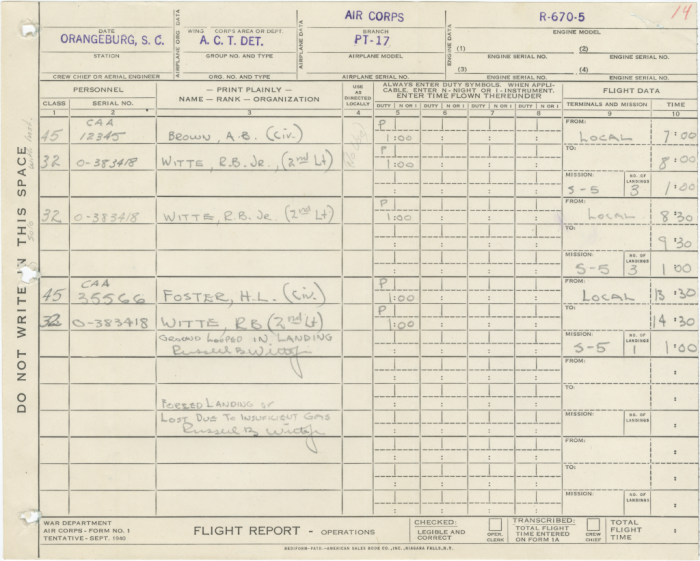 14
DATE
ORANGEBURG, S. C.
STATION
CREW CHIEF OR AERIAL ENGINEER
AIRPLANE ORG. DATA
WING CORPS AREA OR DEPT.
A. C. T. DET.
GROUP NO. AND TYPE
ORG. NO. AND TYPE
AIRPLANE DATA
AIR CORPS
BRANCH
PT-17
AIRPLANE MODEL
AIRPLANE SERIAL NO.
ENGINE DATA
R-670-5
ENGINE MODEL
(1) (2)
ENGINE SERIAL NO. ENGINE SERIAL NO.
(3) (4)
ENGINE SERIAL NO. ENGINE SERIAL NO.
PERSONNEL
CLASS SERIAL NO.
— PRINT PLAINLY —
NAME — RANK — ORGANIZATION
USE AS DIRECTED LOCALLY
ALWAYS ENTER DUTY SYMBOLS. WHEN APPLI-
CABLE, ENTER N - NIGHT OR I - INSTRUMENT.
ENTER TIME FLOWN THEREUNDER
DUTY N OR I DUTY N OR I DUTY N OR I DUTY N OR I DUTY N OR I
FLIGHT DATA
TERMINALS AND MISSION TIME
1 2 3 4 5 6 7 8 9 10
CAA P FROM:
45 12345 BROWN, A.B. (Civ.) 1:00 LOCAL 7:00
P TO:
32 0-383418 WITTE, R.B. JR., (2nd Lt) 1:00 8:00
MISSION: NO. OF LANDINGS
S-5 3 1:00
P FROM:
32 0-383418 WITTE, R.B. JR. (2nd Lt) 1:00 LOCAL 8:30
TO:
9:30
MISSION: NO. OF LANDINGS
S-5 3 1:00
CAA P FROM:
45 35566 FOSTER, H.L. (Civ.) 1:00 LOCAL 13:30
P TO:
32 0-383418 WITTE, RB (2nd Lt) 1:00 14:30
GROUND LOOPED IN LANDING MISSION: NO. OF LANDINGS
Russell B Witte Jr S-5 1 1:00
FROM:
TO:
FORCED LANDING
LOST DUE TO INSUFFICIENT GAS MISSION: NO. OF LANDINGS
Russell B. Witte Jr
FROM:
TO:
MISSION: NO. OF LANDINGS
DO NOT WRITE IN THIS SPACE
WAR DEPARTMENT
AIR CORPS - FORM NO. 1
TENTATIVE - SEPT. 1940
FLIGHT REPORT - OPERATIONS
CHECKED:
LEGIBLE AND CORRECT
OPER. CLERK
TRANSCRIBED:
TOTAL FLIGHT TIME ENTERED ON FORM 1A
CREW CHIEF
TOTAL FLIGHT TIME :
REDIFORM-PATS.-AMERICAN SALES BOOK CO., INC., NIAGARA FALLS, N.Y.